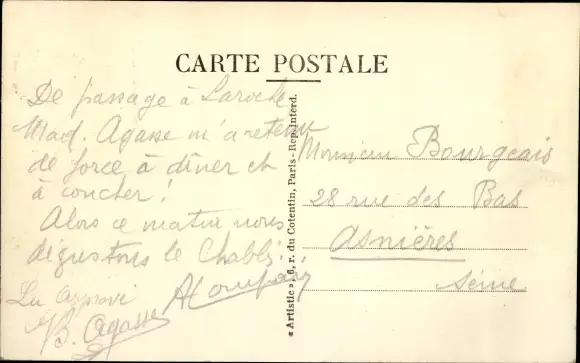 CARTE POSTALE
De passage à Laroche
Mad. Agasse m'a retenu
de force à dîner et
à coucher !
Alors ce matin nous
dégustons le Chablis
Lu approuvé
B. Agasse
« Artistic », 6, r. du Cotentin, Paris - Rep. interd.
Monsieur Bourgeais
28 rue des Bas
Asnières
Seine